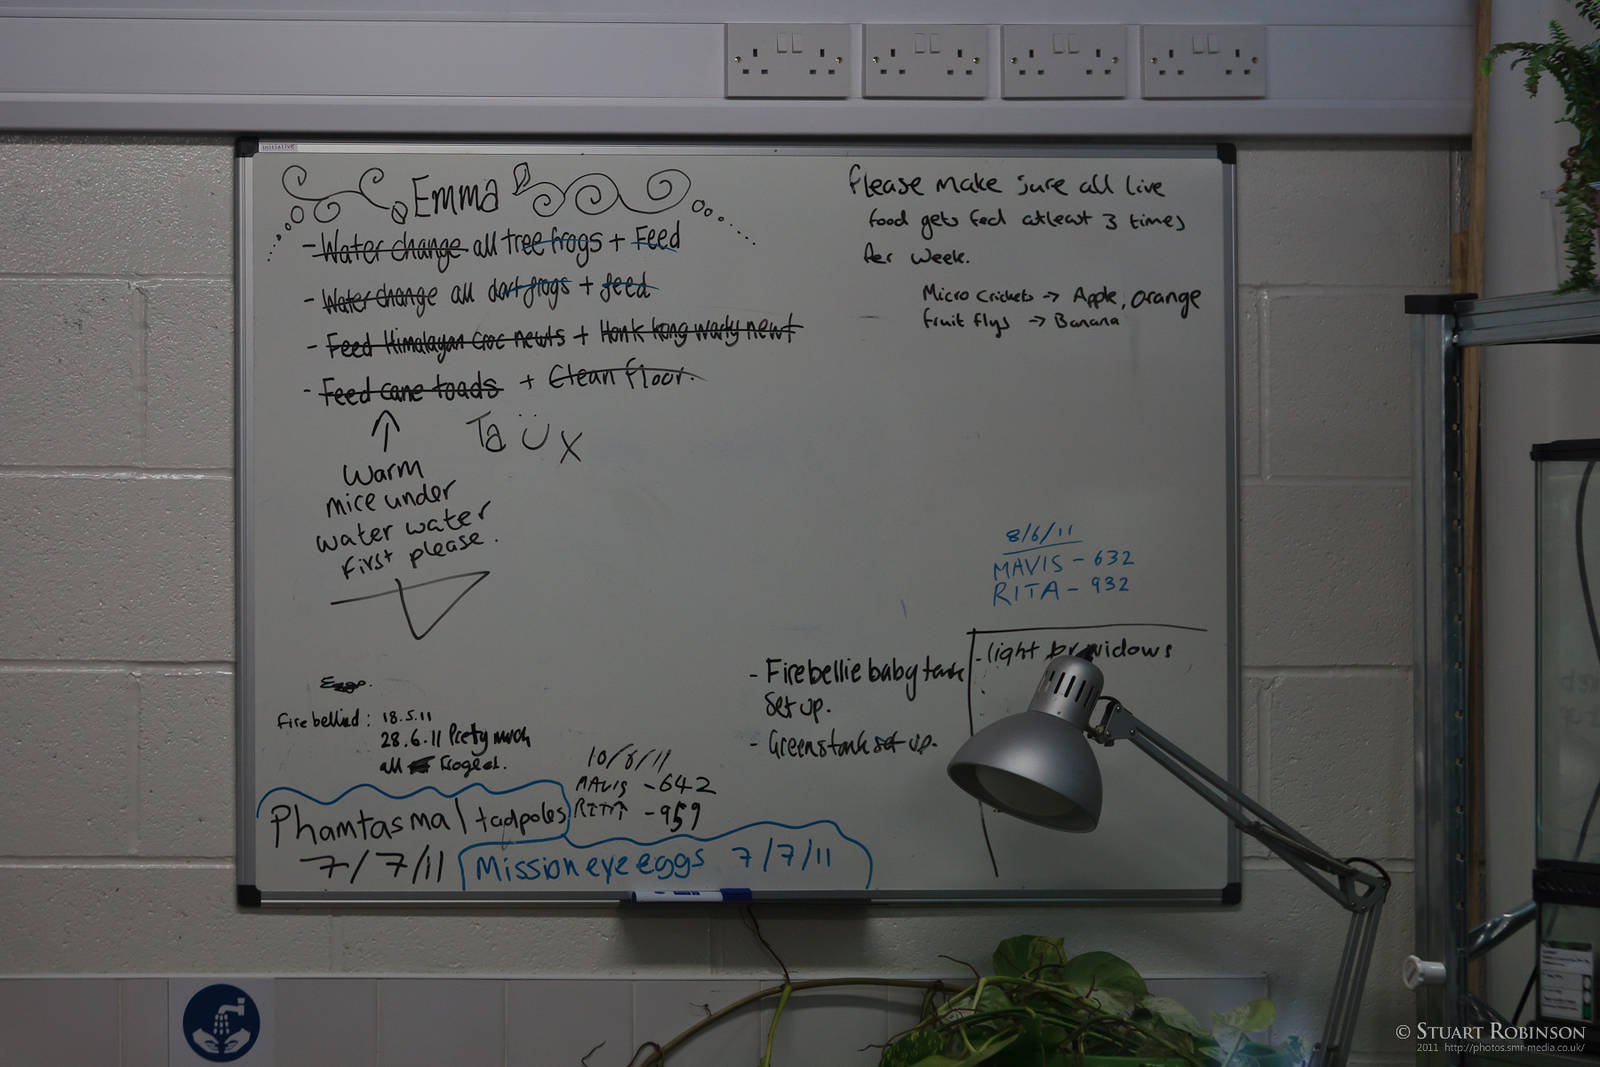 initiative
Emma
- Water change all tree frogs + Feed
- Water change all dart frogs + feed
- Feed Himalayan croc newts + Honk kong warty newt
- Feed cane toads + Clean floor.
Ta Ü x
Warm
mice under
water water
first please.
Please make sure all live
food gets fed atleast 3 times
Per week.
Micro crickets -> Apple, orange
fruit flys -> Banana
8/6/11
MAVIS - 632
RITA - 932
- light for widows
- Firebellie baby tank
set up.
- Greens tank set up.
Eggs.
Fire bellied : 18.5.11
28.6.11 Pretty much
all froged.
10/6/11
MAVIS - 642
RITA - 959
Phamtasmal tadpoles
7/7/11
Mission eye eggs 7/7/11
© STUART ROBINSON
2011 http://photos.smr-media.co.uk/